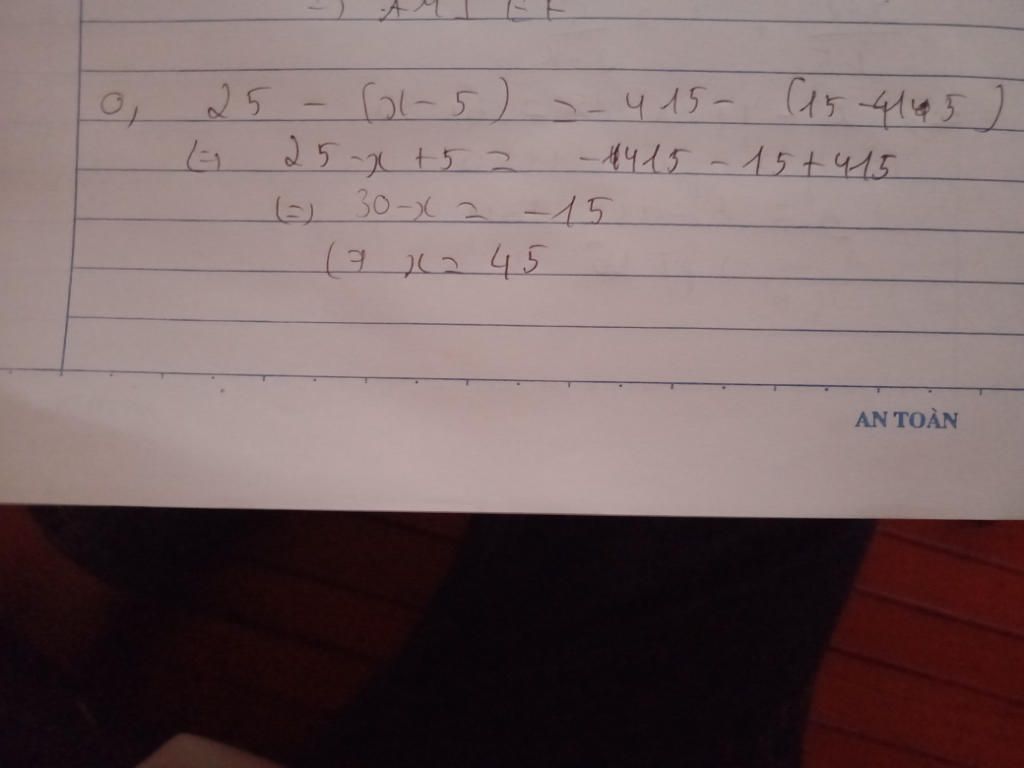 o, 25 - (x - 5) = - 415 - (15 - 415)
(=) 25 - x + 5 = - 415 - 15 + 415
(=) 30 - x = - 15
(=) x = 45
AN TOÀN